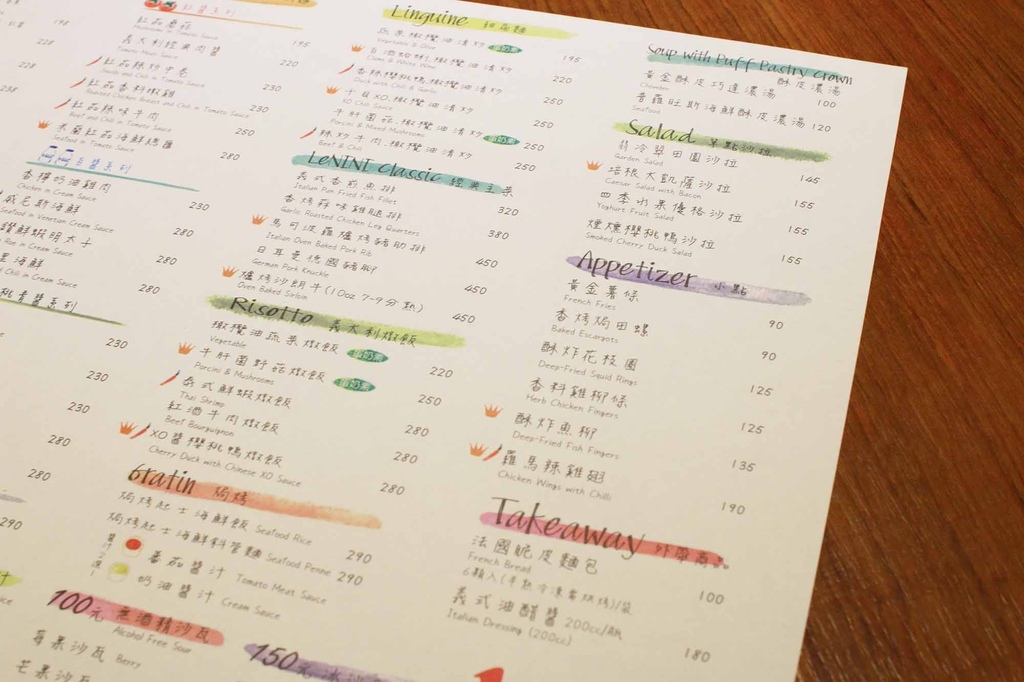 198
228
228
238
紅醬系列
紅茄蘑菇
Mushrooms in Tomato Sauce
195
義大利經典肉醬
Tomato Meat Sauce
220
紅茄辣炒中卷
Squids and Chili in Tomato Sauce
230
紅茄香料椒雞
Roasted Chicken Breast and Chili in Tomato Sauce
230
紅茄辣味牛肉
Beef and Chili in Tomato Sauce
250
米蘭紅茄海鮮
Seafood in Tomato Sauce
280
白醬系列
香檸奶油雞肉
Chicken in Cream Sauce
230
威尼斯海鮮
Seafood in Venetian Cream Sauce
280
鮮蝦明太子
Roe in Cream Sauce
280
海鮮
Chili in Cream Sauce
280
青醬系列
230
230
230
280
280
290
Linguine 細扁麵
蔬菜橄欖油清炒 蛋奶素
Vegetable & Olive
195
白酒蛤蜊.橄欖油清炒
Clams & White Wine
220
香辣櫻桃鴨.橄欖油清炒
Duck with Chili & Garlic
220
干貝XO.橄欖油清炒
XO Chili Sauce
250
牛肝菌菇.橄欖油清炒 蛋奶素
Porcini & Mixed Mushrooms
250
辣炒牛肉.橄欖油清炒
Beef & Chili
250
LeNINI Classic 經典主菜
義式香煎魚排
Italian Pan Fried Fish Fillet
320
香烤蒜味雞腿排
Garlic Roasted Chicken Leg Quarters
380
馬可波羅爐烤豬肋排
Italian Oven Baked Pork Rib
450
日耳曼德國豬腳
German Pork Knuckle
450
爐烤沙朗牛(10oz 7-9分熟)
Oven Baked Sirloin
450
Risotto 義大利燉飯
橄欖油蔬菜燉飯 蛋奶素
Vegetable
220
牛肝菌野菇燉飯 蛋奶素
Porcini & Mushrooms
250
泰式鮮蝦燉飯
Thai Shrimp
280
紅酒牛肉燉飯
Beef Bourguignon
280
XO醬櫻桃鴨燉飯
Cherry Duck with Chinese XO Sauce
280
Gratin 焗烤
焗烤起士海鮮飯 Seafood Rice
290
焗烤起士海鮮斜管麵 Seafood Penne
290
醬汁2選1
番茄醬汁 Tomato Meat Sauce
奶油醬汁 Cream Sauce
100元 無酒精沙瓦
Alcohol Free Sour
莓果沙瓦 Berry
芒果沙瓦
150元 冰沙
Soup with Puff Pastry Crown 酥皮濃湯
黃金酥皮巧達濃湯
Chowder
100
普羅旺斯海鮮酥皮濃湯
Seafood
120
Salad 早點沙拉
翡冷翠田園沙拉
Garden Salad
145
培根大凱薩沙拉
Caesar Salad with Bacon
155
四季水果優格沙拉
Yoghurt Fruit Salad
155
煙燻櫻桃鴨沙拉
Smoked Cherry Duck Salad
155
Appetizer 小點
黃金薯條
French Fries
90
香烤焗田螺
Baked Escargots
90
酥炸花枝圈
Deep-Fried Squid Rings
125
香料雞柳條
Herb Chicken Fingers
125
酥炸魚柳
Deep-Fried Fish Fingers
135
羅馬辣雞翅
Chicken Wings with Chilli
190
Takeaway 外帶商品
法國脆皮麵包
French Bread
6顆入(半熟冷凍需烘烤)/袋
100
義式油醋醬 200cc/瓶
Italian Dressing (200cc)
180